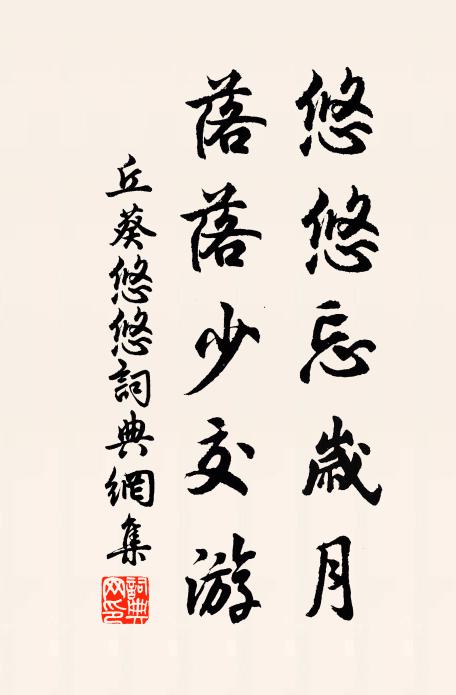 悠悠忘歲月
落落少交游
丘葵悠悠詞典網集
詞典网印